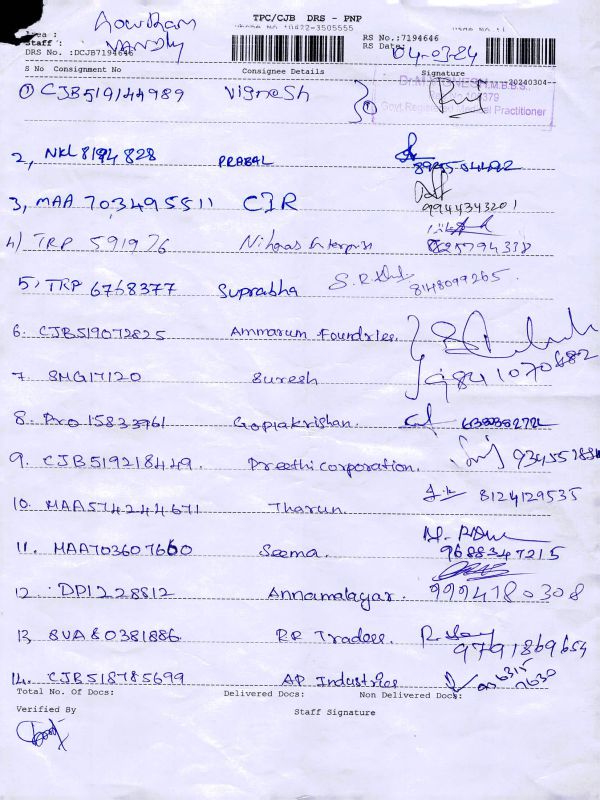 Gowtham
TPC/CJB DRS - PNP
Phone No :0422-3505555
Area :
Staff :
RS No.:7194646
RS Date: 04-03-24
DRS No. :DCJB7194646
S No Consignment No Consignee Details Signature
20240304
Govt.Registered Medical Practitioner
1 CJB519144989 Vignesh
2, NKL 8194828 PRABAL
3, MAA 703495511 CIR 9944343201
4) TRP 591976 8825794338
5, TRP 6768377 Suprabha 8148099265.
6. CJB519072825 Ammarum Foundries.
7. SMG17120 Suresh 9841070682
8. Pro 15833761 Gopiakrishan.
9. CJB519218449. Preethi corporation.
10. MAA574244671 Tharun. 8124129535
11. MAA703607660 Seema. 9688347215
12. DPI228812 Annamalayar. 9994180308
13, SUA80381886 RR Trades. 9791869654
14. CJB518785699 AP Industries
Total No. Of Docs: Delivered Docs: Non Delivered Docs:
Verified By
Staff Signature